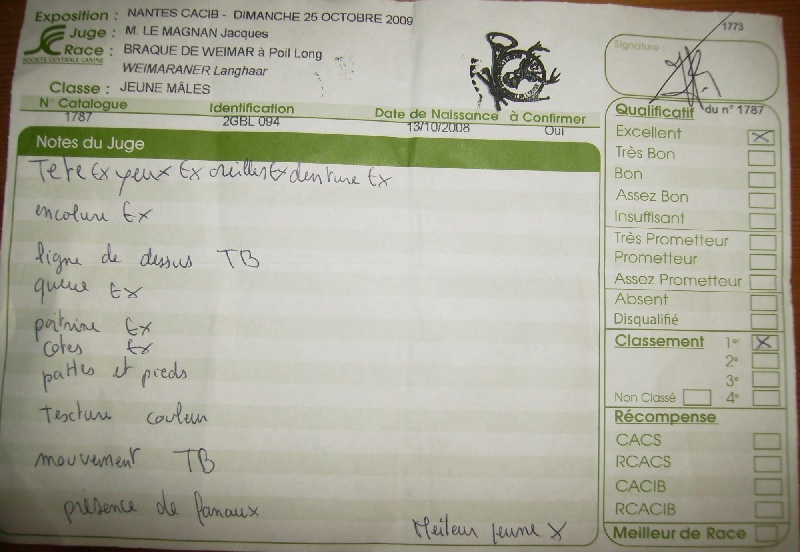 1773
Exposition : NANTES CACIB - DIMANCHE 25 OCTOBRE 2009
Juge : M. LE MAGNAN Jacques
Race : BRAQUE DE WEIMAR à Poil Long
SOCIÉTÉ CENTRALE CANINE
WEIMARANER Langhaar
Classe : JEUNE MÂLES
N° Catalogue Identification Date de Naissance à Confirmer
1787 2GBL 094 13/10/2008 Oui
Notes du Juge
Tete Ex yeux Ex oreilles Ex denture Ex
encolure Ex
ligne de dessus TB
queue Ex
poitrine Ex
cotes Ex
pattes et pieds
Texture couleur
mouvement TB
présence de fanaux
Meileur jeune X
Signature :
Qualificatif du n° 1787
Excellent X
Très Bon
Bon
Assez Bon
Insuffisant
Très Prometteur
Prometteur
Assez Prometteur
Absent
Disqualifié
Classement 1er X
2e
3e
Non Classé 4e
Récompense
CACS
RCACS
CACIB
RCACIB
Meilleur de Race